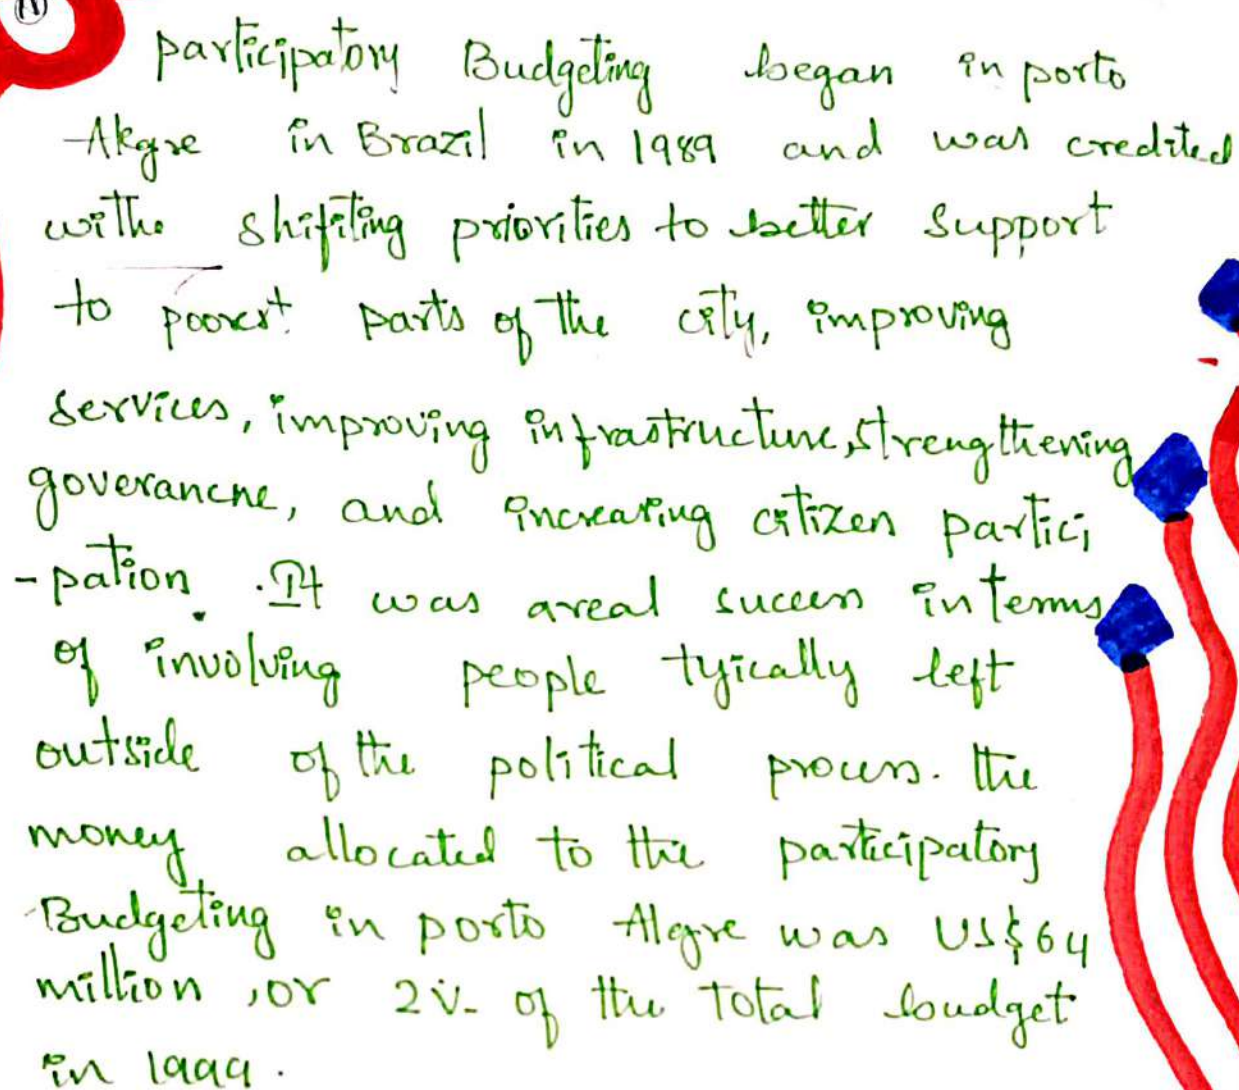 (A)
participatory Budgeting began in porto
-Akgre in Brazil in 1989 and was credited
withe shifiting priorities to better support
to poorest parts of the city, improving
services, improving infrastructure, strengthening
goverancne, and increasing citizen partici
-pation. It was areal success in terms
of involving people tyically left
outside of the political process. the
money allocated to the participatory
Budgeting in porto Alegre was US$64
million, or 2%. of the Total budget
in 1999.